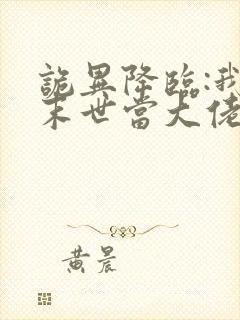 詭異降臨:我
末世當大佬
黄晨